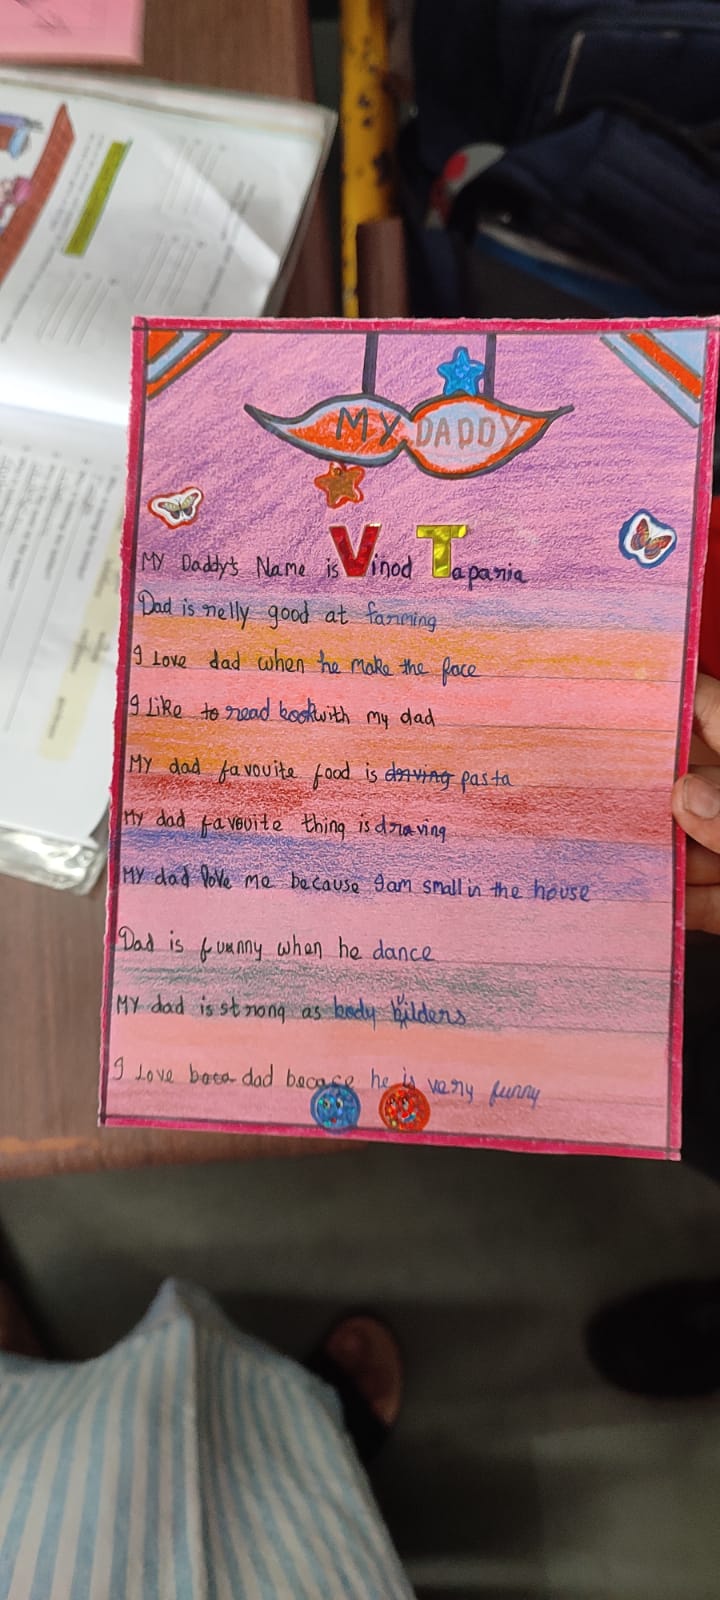 MY DADDY
MY Daddy's Name is Vinod Tapania
Dad is relly good at farming
I Love dad when he make the face
I Like to read book with my dad
MY dad favouite food is driving pasta
My dad favouite thing is draving
MY dad love me because I am small in the house
Dad is funny when he dance
MY dad is strong as body builders
I Love beca dad becase he is very funny